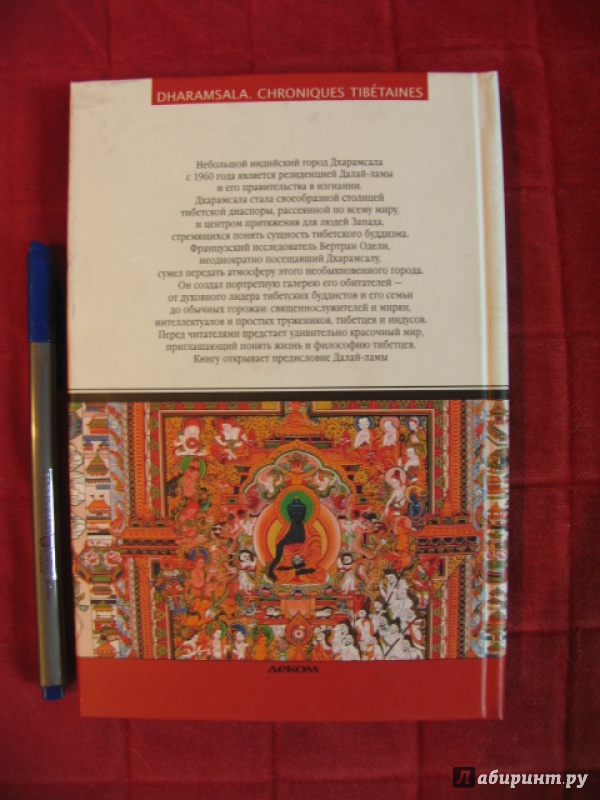 DHARAMSALA. CHRONIQUES TIBÉTAINES
Небольшой индийский город Дхарамсала
с 1960 года является резиденцией Далай-ламы
и его правительства в изгнании.
Дхарамсала стала своеобразной столицей
тибетской диаспоры, рассеянной по всему миру,
и центром притяжения для людей Запада,
стремящихся понять сущность тибетского буддизма.
Французский исследователь Бертран Одели,
неоднократно посещавший Дхарамсалу,
сумел передать атмосферу этого необыкновенного города.
Он создал портретную галерею его обитателей —
от духовного лидера тибетских буддистов и его семьи
до обычных горожан: священнослужителей и мирян,
интеллектуалов и простых тружеников, тибетцев и индусов.
Перед читателями предстает удивительно красочный мир,
приглашающий понять жизнь и философию тибетцев.
Книгу открывает предисловие Далай-ламы
ДЕКОМ
Лабиринт.ру